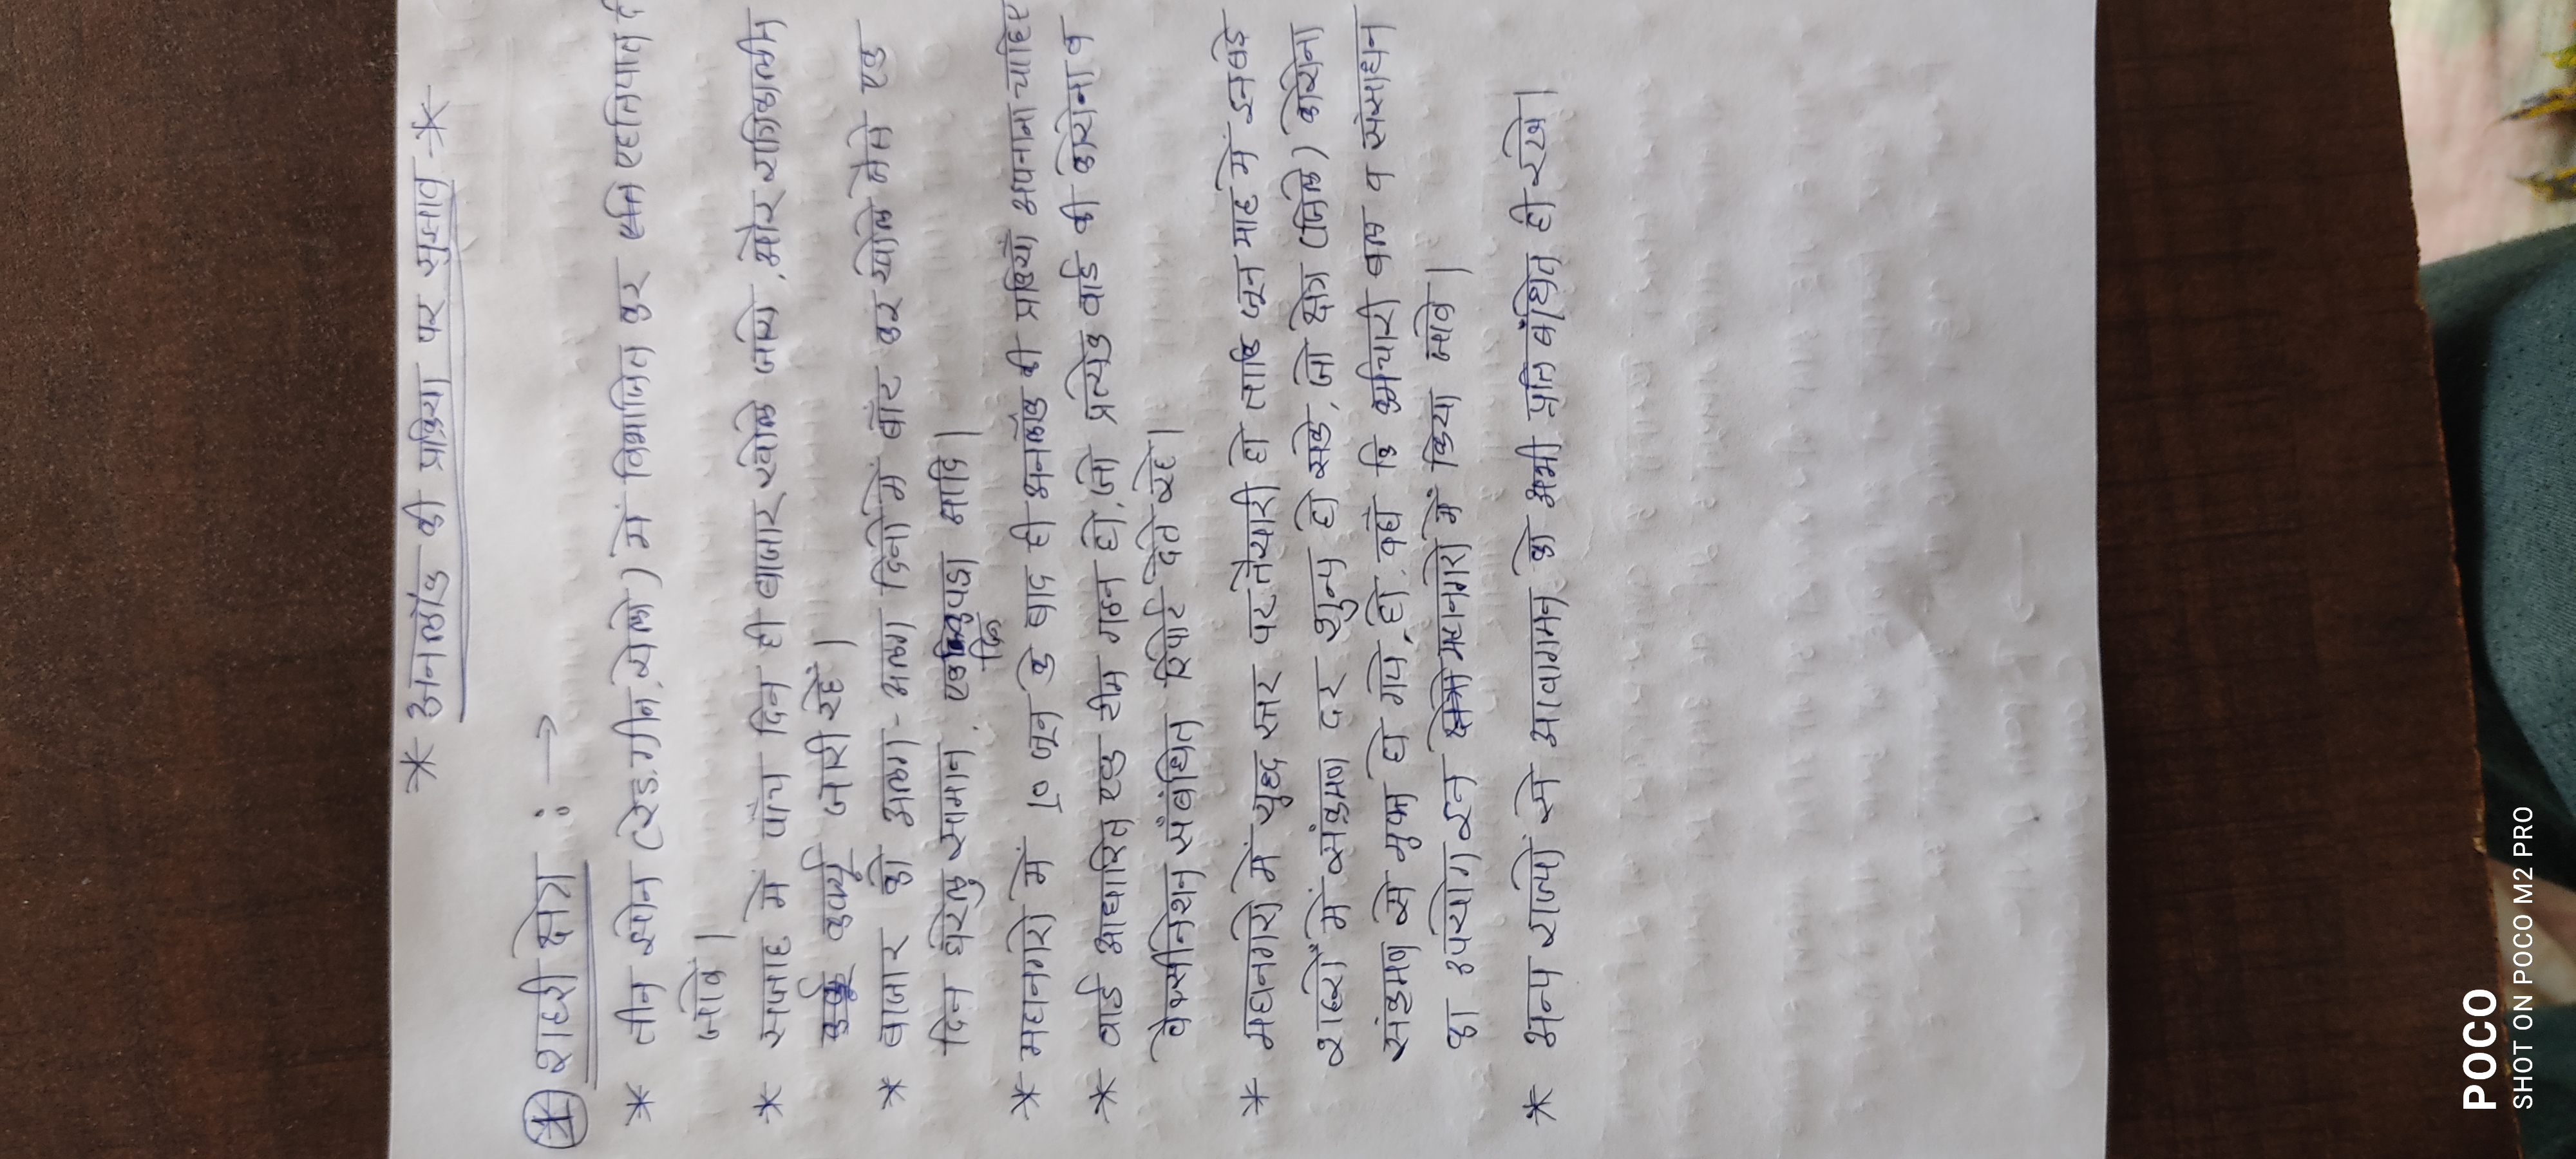 * अनलॉक की प्रक्रिया पर सुझाव *
1 शहरी क्षेत्र :→
* तीन झोन (रेड, ग्रीन, येलो) में विभाजित कर सभी एहतियात
जावे।
* सप्ताह में पाँच दिन ही बाजार खोले जाये, और रात्रिकालीन
कर्फ्यू जारी रहें।
* बाजार को अलग-अलग दिनो में बांट कर खोले जैसे एक
दिन घरेलु सामान, एक दिन कपडा आदि।
* महानगरो में 10 जून के बाद ही अनलॉक की प्रक्रिया अपनाना चाहिए
* वार्ड आधारित एक टीम गठन हो, जो प्रत्येक वार्ड की कोरोना व
वेक्सीनेशन संबंधित रिपोर्ट देते रहे।
* महानगरो में युद्ध स्तर पर तैयारी हो ताकि जून माह में इनके
शहरो में संक्रमण दर शुन्य हो सके, जो क्षेत्र (जिले) कोरोना
संक्रमण से मुक्त हो गये हो, वहाँ के कर्मचारी बल व संसाधन
का उपयोग इन महानगरो में किया जावे।
* अन्य राज्यों से आवागमन को अभी प्रतिबंधित ही रखे।
POCO
SHOT ON POCO M2 PRO